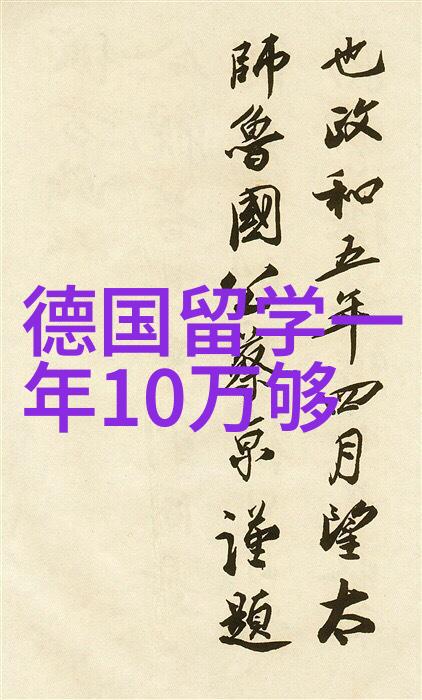 也政和五年四月望太
師魯國公蔡京謹題
德国留学一
年10万够